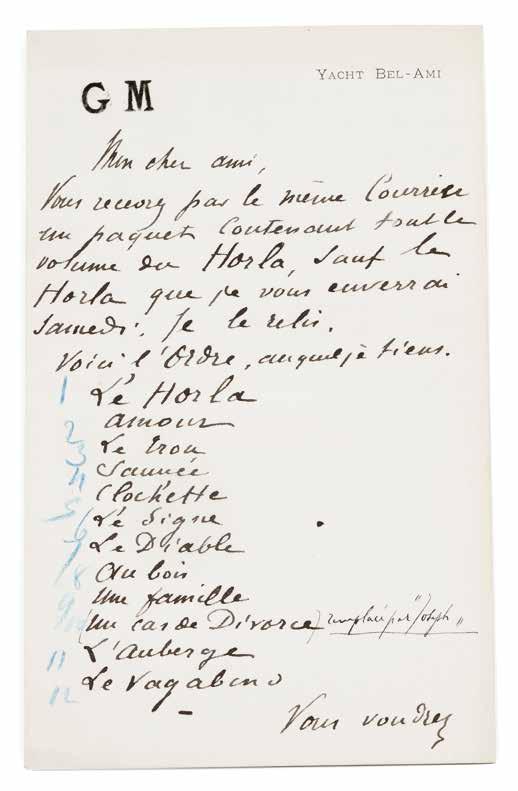 YACHT BEL-AMI
G M
Mon cher ami,
Vous recevrez par le même Courrier
un paquet Contenant tout le
volume du Horla, sauf le
Horla que je vous enverrai
Samedi. Je le relis.
Voici l'Ordre, auquel je tiens.
1 Le Horla
2 amour
3 Le Trou
4 Sauvée
5 Clochette
6 Le Signe
7 Le Diable
8 Au bois
9 Une famille
10 (Un cas de Divorce) remplacé par "Joseph"
11 L'Auberge
12 Le Vagabond
Vous voudrez